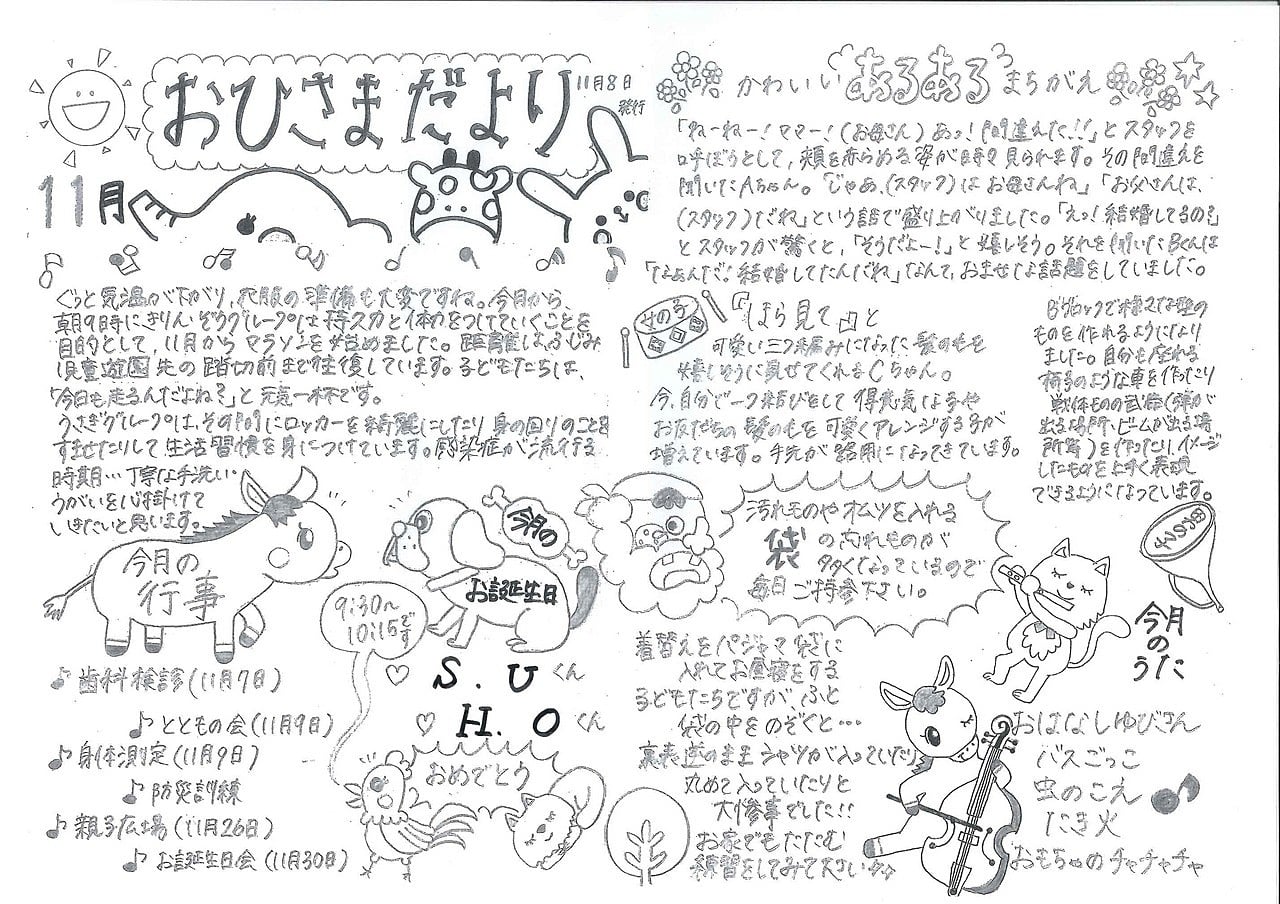 おひさまだより
11月8日
発行
11月
ぐっと気温が下がり、衣服の準備も大変ですね。今月から、
朝9時にきりん・ぞうグループは持久力と体力をつけていくことを
目的として、11月からマラソンを始めました。距離はふじみ
児童遊園先の踏切前まで往復しています。子どもたちは、
「今日も走るんだよね？」と元気一杯です。
うさぎグループは、その間にロッカーを綺麗にしたり身の回りのことを
すませたりして生活習慣を身につけています。感染症が流行する
時期…丁寧な手洗い・
うがいを心掛けて
いきたいと思います。
今月の
行事
♪歯科検診(11月7日)
♪とともの会(11月9日)
♪身体測定(11月9日)
♪防災訓練
♪親子広場(11月26日)
♪お誕生日会(11月30日)
9:30〜
10:15です
今月の
お誕生日
♡ S.Uくん
♡ H.Oくん
おめでとう
かわいいあるあるまちがえ
「ねーねー！ママー！(お母さん)あっ！間違えた！！」とスタッフを
呼ぼうとして、頬を赤らめる姿が時々見られます。その間違えを
聞いたAちゃん。「じゃあ、(スタッフ)はお母さんね」「お父さんは、
(スタッフ)だね」という話で盛り上がりました。「えっ！結婚してるの？」
とスタッフが驚くと、「そうだよー！」と嬉しそう。それを聞いたBくんは
「なぁんだ！結婚してたんだね」なんて、おませな話題をしていました。
女の子
『ほら見て』と
可愛い三つ編みになった髪の毛を
嬉しそうに見せてくれるCちゃん。
今、自分で一つ結びをして得意気な子や
お友だちの髪の毛を可愛くアレンジする子が
増えています。手先が器用になってきています。
男の子
Bブロックで様々な型の
ものを作れるようになり
ました。自分も座れる
椅子のような車を作ったり
戦体ものの武器(弾が
出る場所、ビームが出る場
所等)を作ったり、イメージ
したものを上手く表現
できるようになっています。
汚れものやオムツを入れる
袋の内れものが
多くなっているので
毎日ご持参下さい。
着替えをパジャマ袋に
入れてお昼寝をする
子どもたちですが、ふと
袋の中をのぞくと…
裏表逆のままシャツが入っていたり
丸めて入っていたりと
大惨事でした!!
お家でもたたむ
練習をしてみて下さい
今月
の
うた
おはなしゆびさん
バスごっこ
虫のこえ
たき火
おもちゃのチャチャチャ